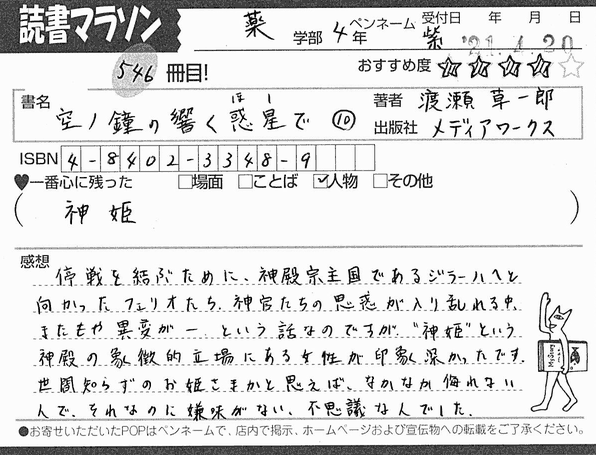 読書マラソン
薬 学部 4年 ペンネーム 紫 受付日 年 月 日
'21.4.20
546 冊目!
おすすめ度 ★★★★☆
書名 空ノ鐘の響く惑星で ⑩
ほし
著者 渡瀬草一郎
出版社 メディアワークス
ISBN 4-8402-3348-9
♥一番心に残った □場面 □ことば ☑人物 □その他
(神姫)
感想
停戦を結ぶために、神殿宗主国であるジラーハへと
向かったフェリオたち。神官たちの思惑が入り乱れる中、
またもや異変が─ という話なのですが、"神姫"という
神殿の象徴的立場にある女性が印象深かったです。
世間知らずのお姫さまかと思えば、なかなか侮れない
人で、それなのに嫌味がない、不思議な人でした。
●お寄せいただいたPOPはペンネームで、店内で掲示、ホームページおよび宣伝物への転載をご了承ください。